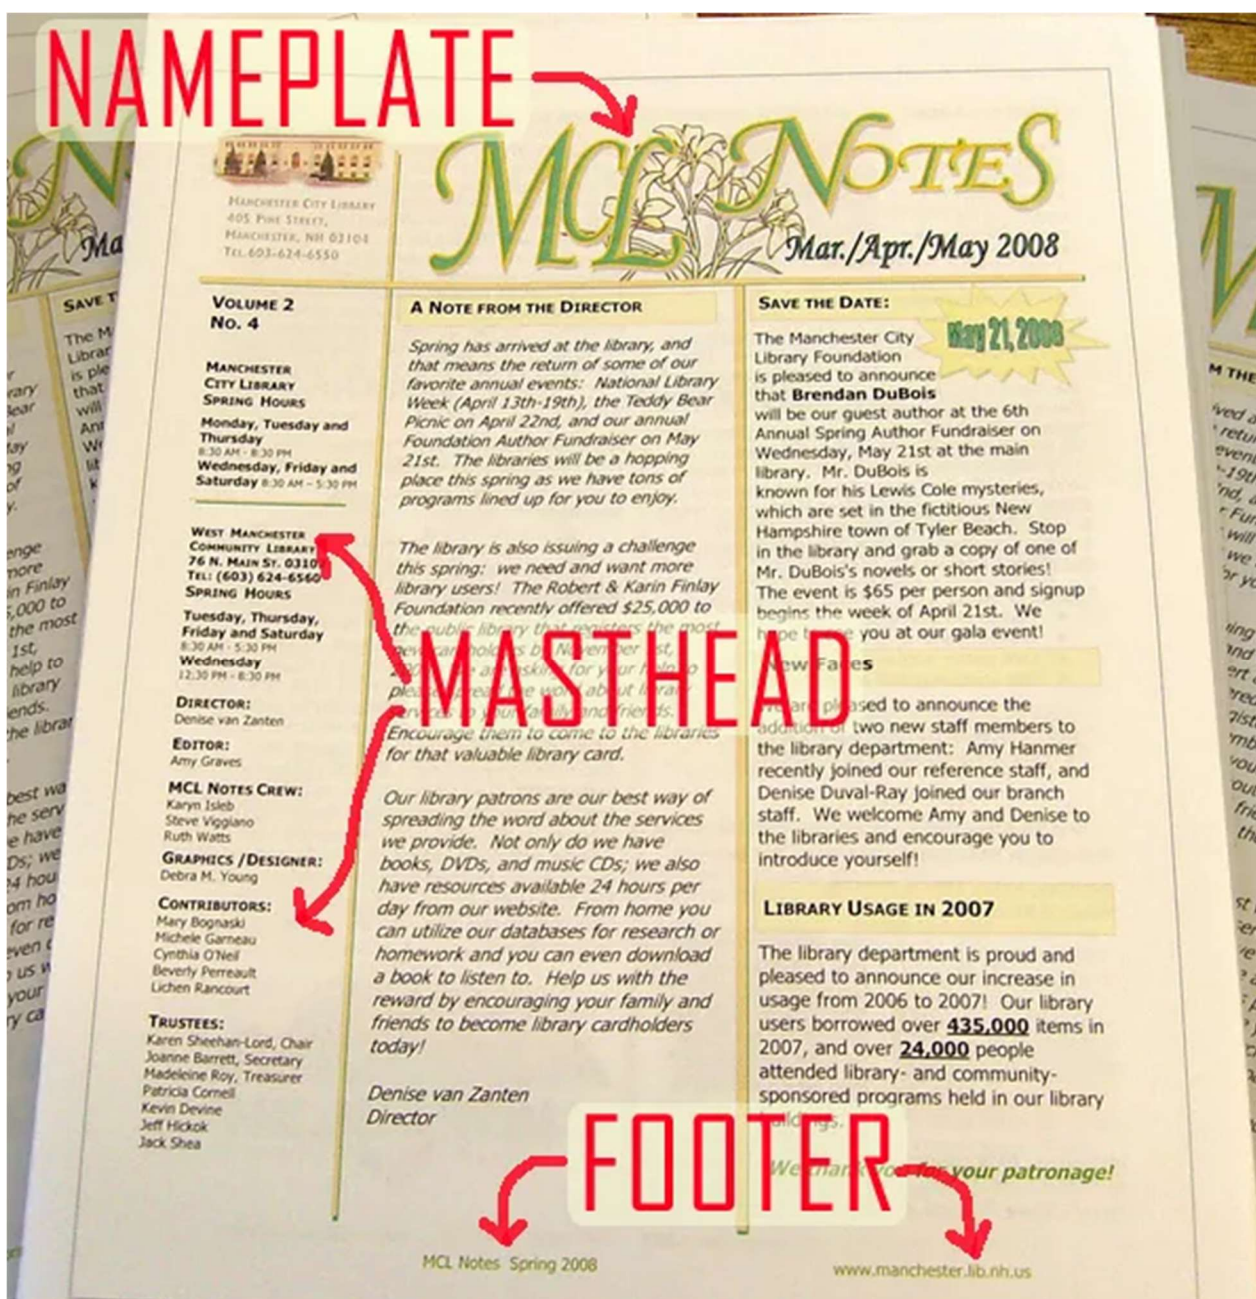 NAMEPLATE
MCL NOTES
Mar./Apr./May 2008
MANCHESTER CITY LIBRARY
405 PINE STREET,
MANCHESTER, NH 03104
TEL. 603-624-6550
VOLUME 2
NO. 4
MANCHESTER
CITY LIBRARY
SPRING HOURS
Monday, Tuesday and
Thursday
8:30 AM - 8:30 PM
Wednesday, Friday and
Saturday 8:30 AM – 5:30 PM
WEST MANCHESTER
COMMUNITY LIBRARY
76 N. MAIN ST. 03102
TEL: (603) 624-6560
SPRING HOURS
Tuesday, Thursday,
Friday and Saturday
8:30 AM - 5:30 PM
Wednesday
12:30 PM - 8:30 PM
DIRECTOR:
Denise van Zanten
EDITOR:
Amy Graves
MCL NOTES CREW:
Karyn Isleb
Steve Viggiano
Ruth Watts
GRAPHICS /DESIGNER:
Debra M. Young
CONTRIBUTORS:
Mary Bognaski
Michele Garneau
Cynthia O'Neil
Beverly Perreault
Lichen Rancourt
TRUSTEES:
Karen Sheehan-Lord, Chair
Joanne Barrett, Secretary
Madeleine Roy, Treasurer
Patricia Cornell
Kevin Devine
Jeff Hickok
Jack Shea
A NOTE FROM THE DIRECTOR
Spring has arrived at the library, and
that means the return of some of our
favorite annual events: National Library
Week (April 13th-19th), the Teddy Bear
Picnic on April 22nd, and our annual
Foundation Author Fundraiser on May
21st. The libraries will be a hopping
place this spring as we have tons of
programs lined up for you to enjoy.
The library is also issuing a challenge
this spring: we need and want more
library users! The Robert & Karin Finlay
Foundation recently offered $25,000 to
the public library that registers the most
new cardholders by November 1st,
asking for your help to
please spread the word about library
services to your family and friends.
Encourage them to come to the libraries
for that valuable library card.
MASTHEAD
Our library patrons are our best way of
spreading the word about the services
we provide. Not only do we have
books, DVDs, and music CDs; we also
have resources available 24 hours per
day from our website. From home you
can utilize our databases for research or
homework and you can even download
a book to listen to. Help us with the
reward by encouraging your family and
friends to become library cardholders
today!
Denise van Zanten
Director
SAVE THE DATE:
May 21, 2008
The Manchester City
Library Foundation
is pleased to announce
that Brendan DuBois
will be our guest author at the 6th
Annual Spring Author Fundraiser on
Wednesday, May 21st at the main
library. Mr. DuBois is
known for his Lewis Cole mysteries,
which are set in the fictitious New
Hampshire town of Tyler Beach. Stop
in the library and grab a copy of one of
Mr. DuBois's novels or short stories!
The event is $65 per person and signup
begins the week of April 21st. We
hope to see you at our gala event!
New Faces
We are pleased to announce the
addition of two new staff members to
the library department: Amy Hanmer
recently joined our reference staff, and
Denise Duval-Ray joined our branch
staff. We welcome Amy and Denise to
the libraries and encourage you to
introduce yourself!
LIBRARY USAGE IN 2007
The library department is proud and
pleased to announce our increase in
usage from 2006 to 2007! Our library
users borrowed over 435,000 items in
2007, and over 24,000 people
attended library- and community-
sponsored programs held in our library
buildings.
We thank you for your patronage!
FOOTER
MCL Notes Spring 2008
www.manchester.lib.nh.us